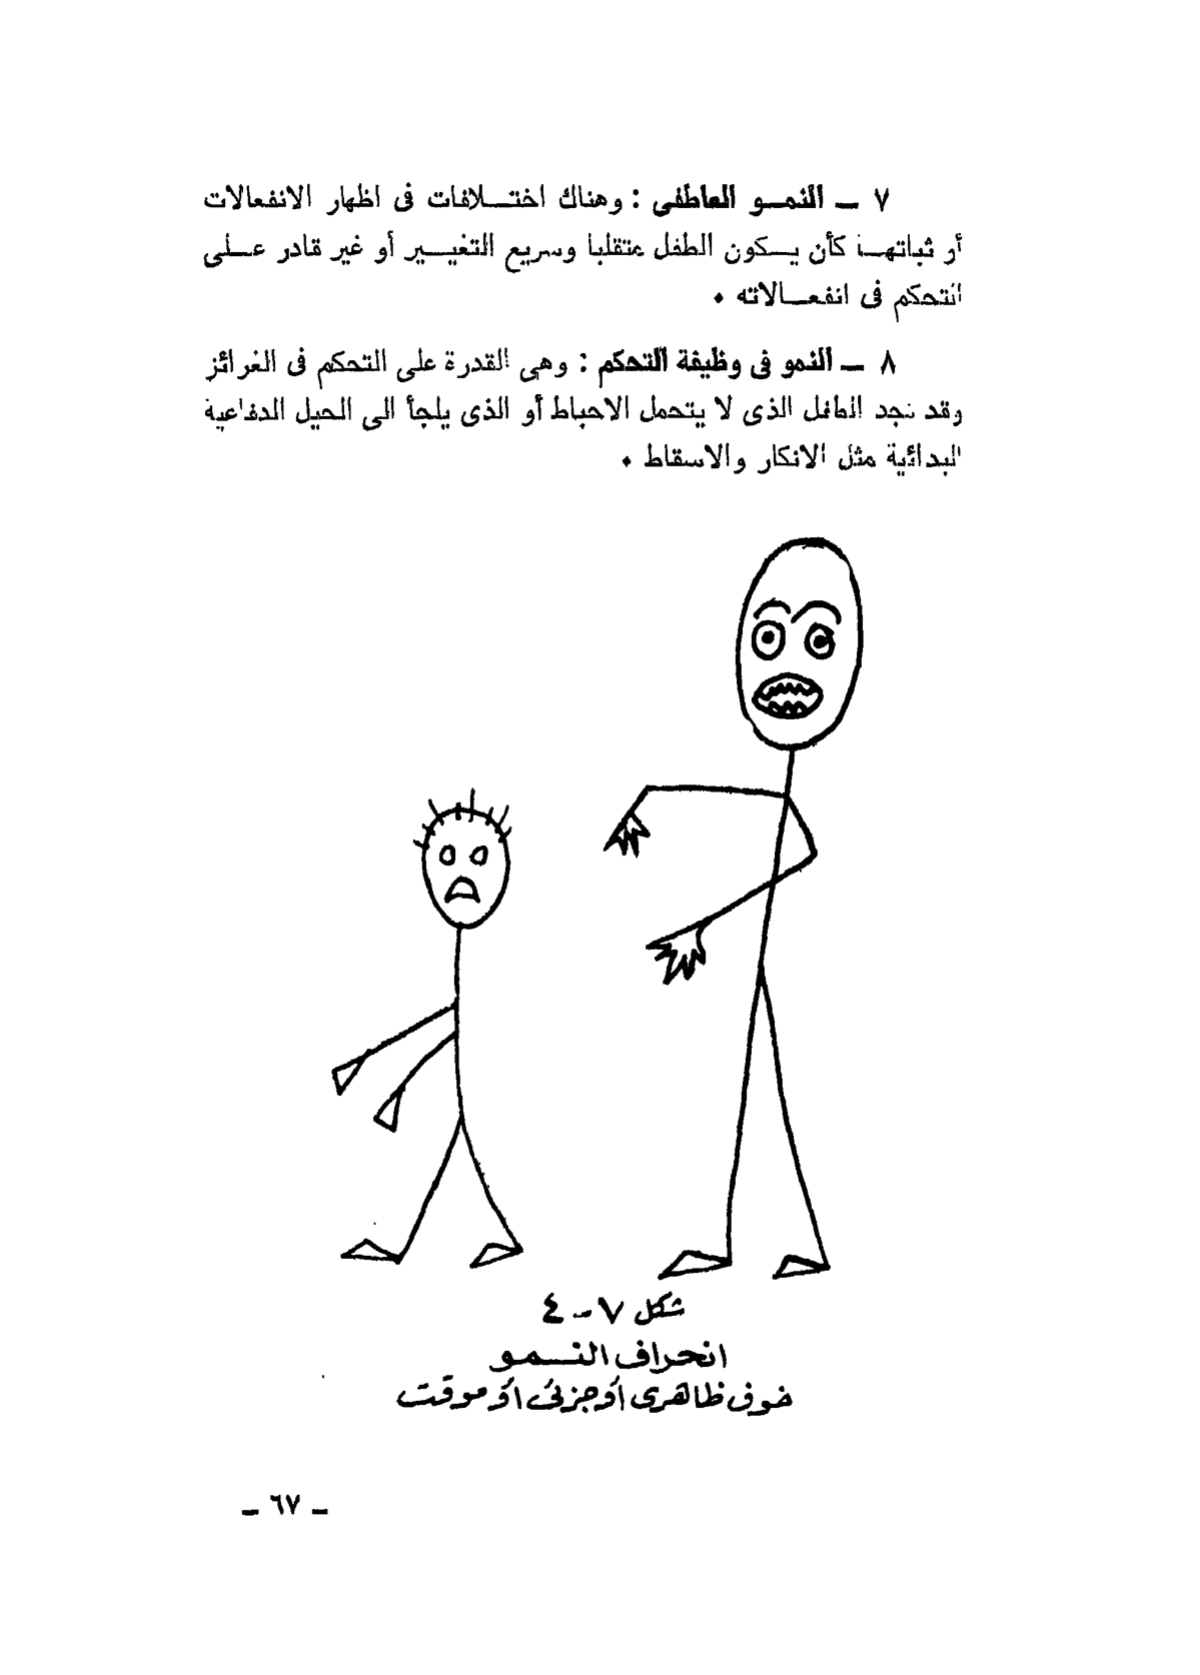 ٧ ــ النمــو العاطفى : وهناك اختــلافات فى اظهار الانفعالات
أو ثباتهــا كأن يــكون الطفل متقلبا وسريع التغيــير أو غير قادر عــلى
التحكم فى انفعــالاته ٠
٨ ــ النمو فى وظيفة التحكم : وهى القدرة على التحكم فى الغرائز
وقد نجد الطفل الذى لا يتحمل الاحباط أو الذى يلجأ الى الحيل الدفاعية
البدائية مثل الانكار والاسقاط ٠
شكل ٧ - ٤
انحراف النــمو
خوف ظاهرى أو جزئى أو موقت
ــ ٦٧ ــ